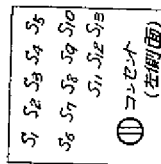 S1 S2 S3 S4 S5
S6 S7 S8 S9 S10
S11 S12 S13
コンセント
(左側面)